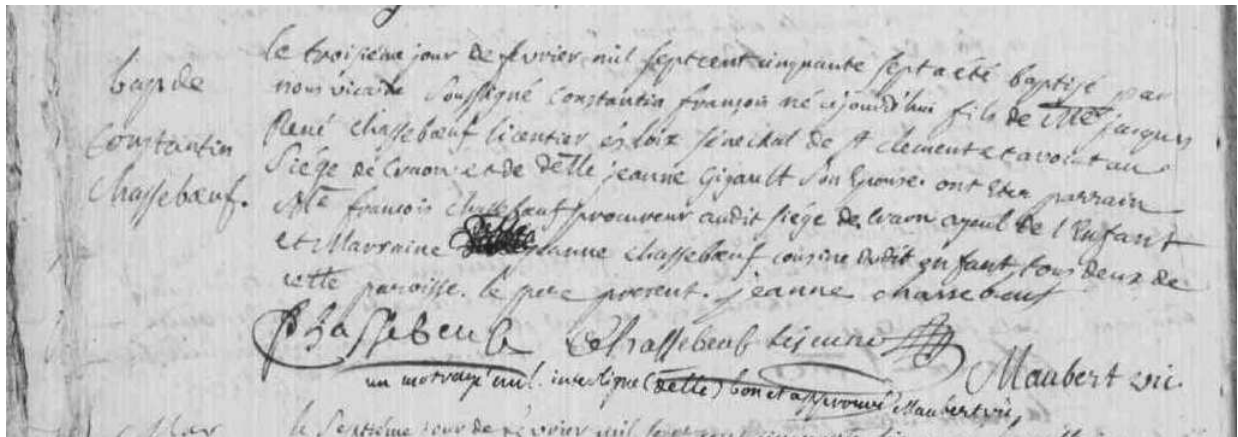 bap. de
Constantin
Chassebœuf.
Le troisième jour de fevrier mil sept cent cinquante sept a été baptisé par
nous vicaire soussigné Constantin françois né ce jourd'hui fils de Mtre jacques
René Chassebœuf licentier ès loix sénéchal de St clement et avocat au
Siége de Craon et de delle jeanne Gigault son Epouse. ont Eter parrain
Mtre françois Chassebœuf procureur audit siége de Craon ayeul de l'Enfant
et Marraine jeanne Chassebœuf cousine dudit enfant, tous deux de
cette paroisse. le pere present. jeanne chassebœuf
Chassebeuf Chassebeuf Le jeune Maubert vic.
un mot rayé nul. interligne (delle) bon et approuvé Maubert vic,
le septième jour de février mil sept cent